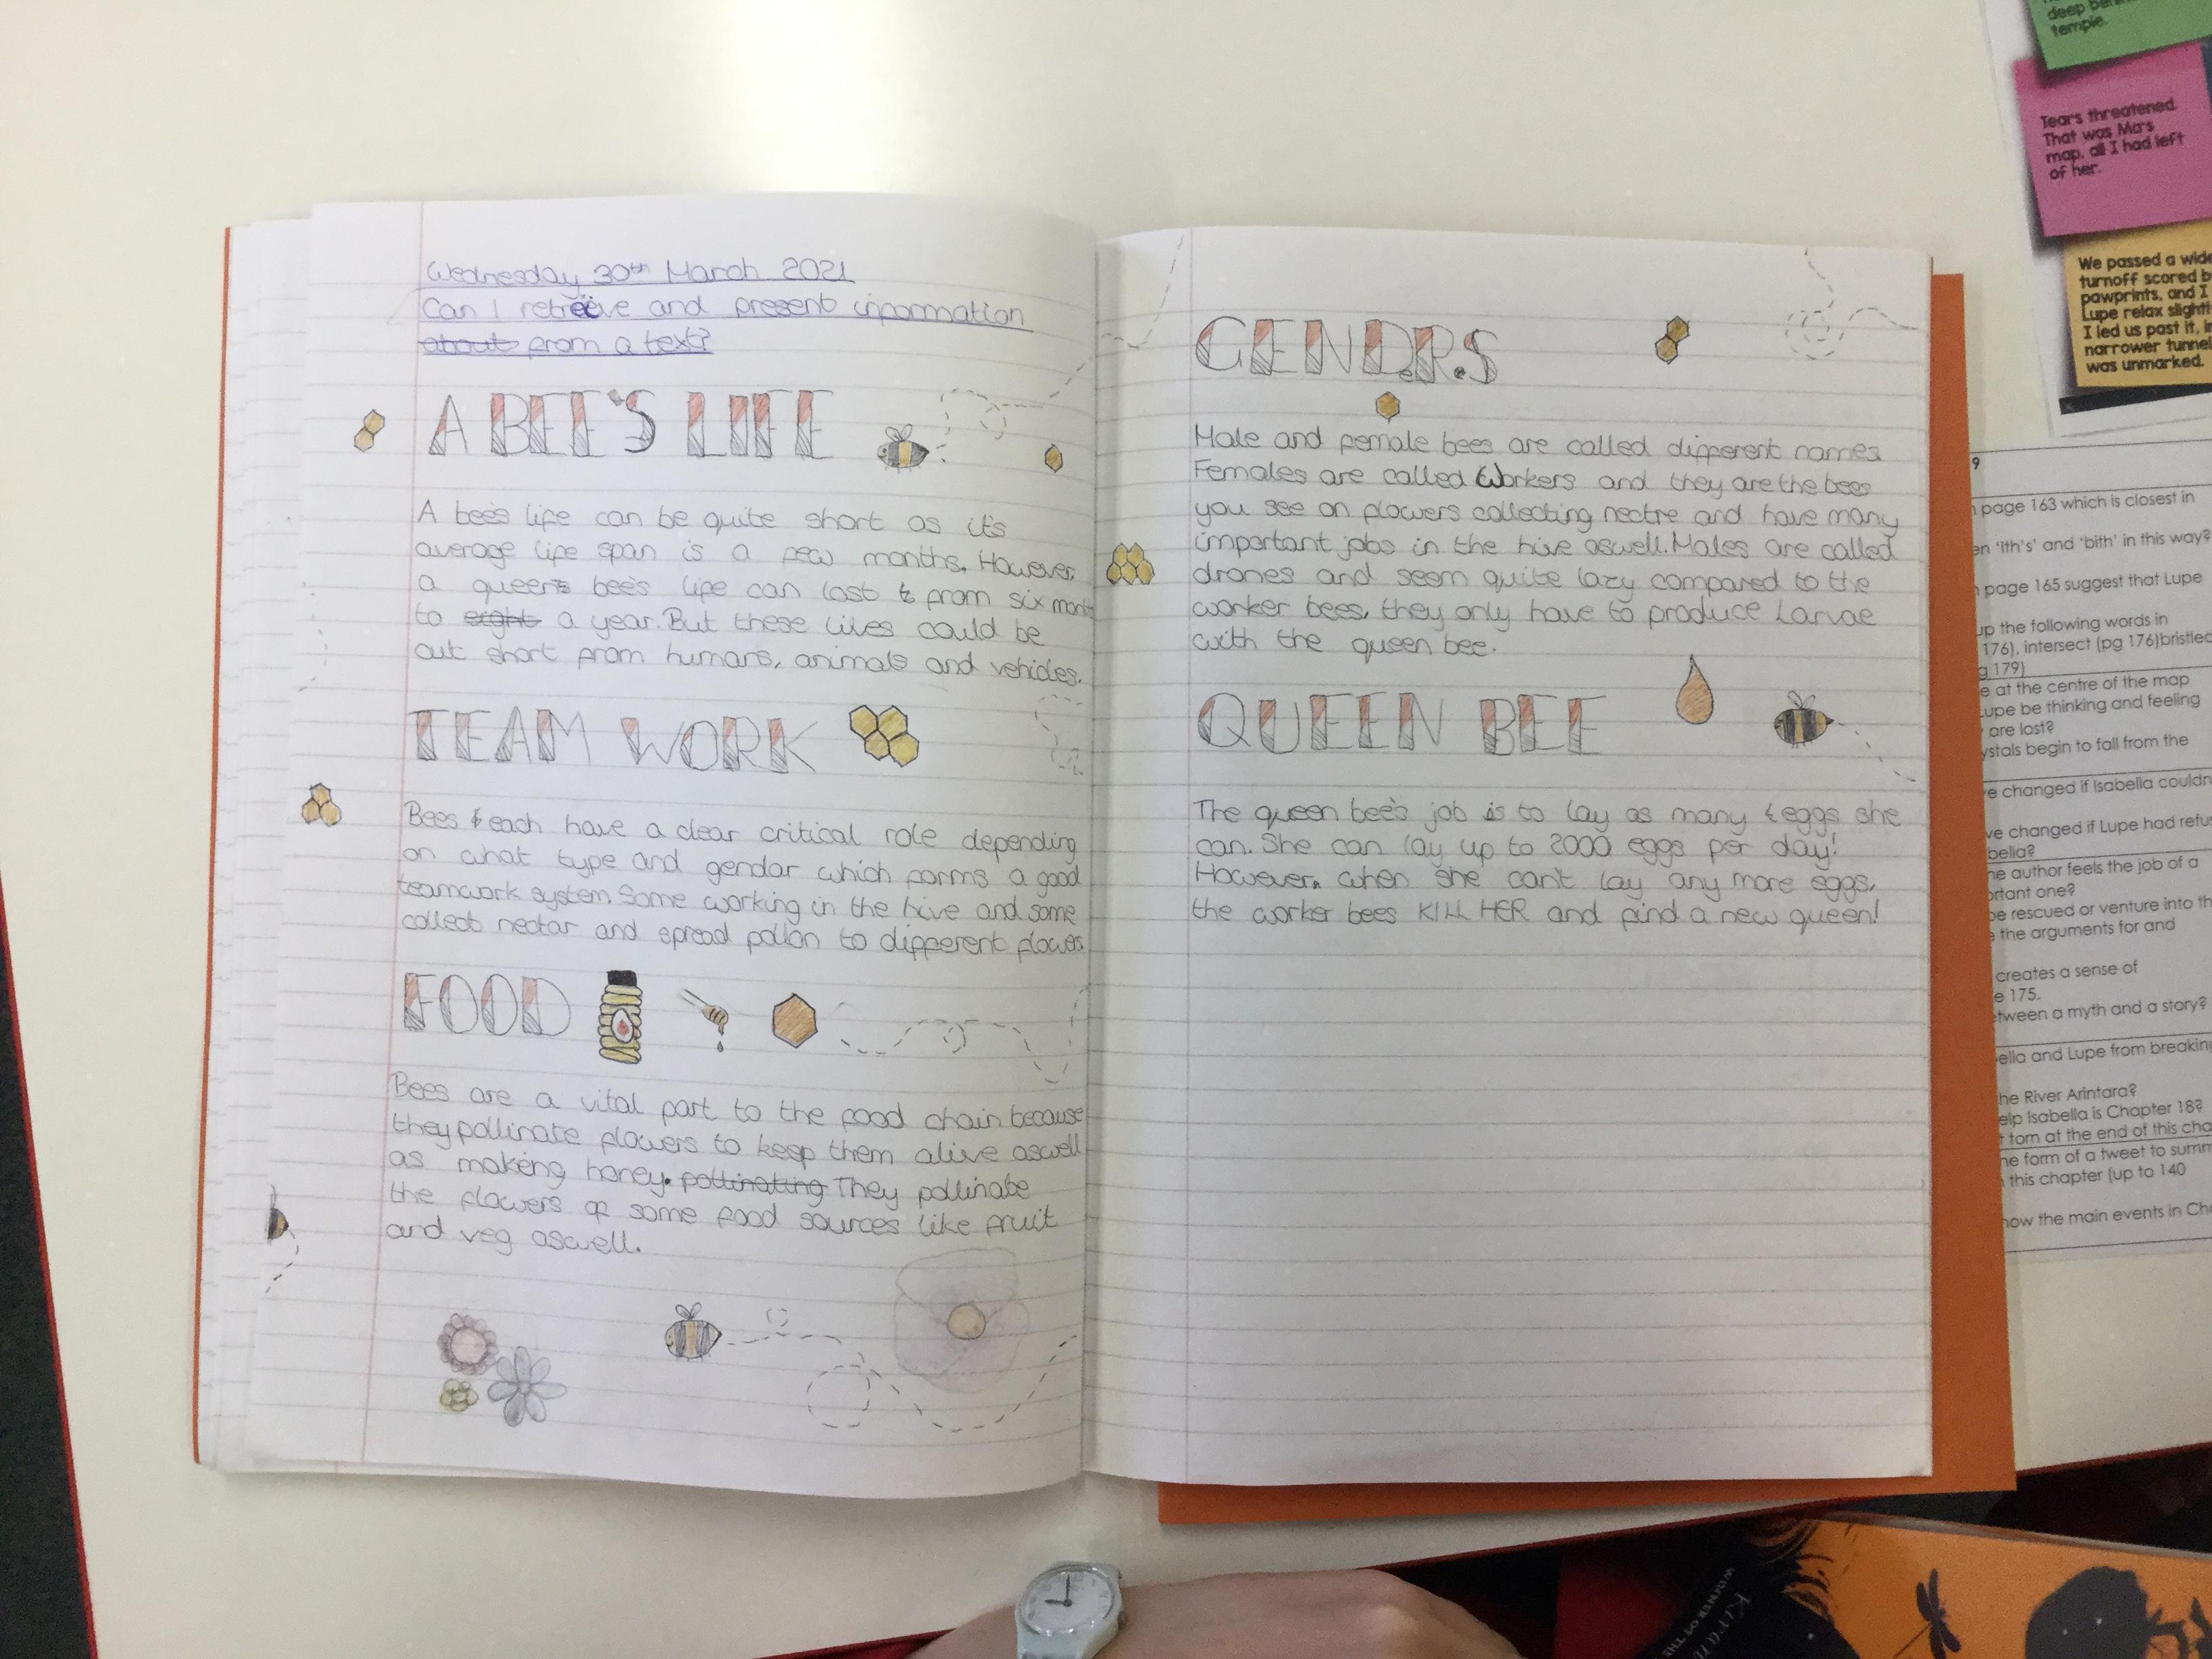 Wednesday 30th March 2021
Can I retreive and present information
about from a text?
A BEE'S LIFE
A bee's life can be quite short as it's
average life span is a few months. However,
a queen's bee's life can last t from six months
to eight a year. But these lives could be
cut short from humans, animals and vehicles.
TEAM WORK
Bees & each have a clear critical role depending
on what type and gendar which forms a good
teamwork system. Some working in the hive and some
collect nectar and spread pollon to different flowers
FOOD
Bees are a vital part to the food chain because
they pollinate flowers to keep them alive aswell
as making honey. pollinating They pollinate
the flowers of some food sources like fruit
and veg aswell.
GENDERS
Male and female bees are called different names.
Females are called Workers and they are the bees
you see on flowers collecting nectre and have many
important jobs in the hive aswell. Males are called
drones and seem quite lazy compared to the
worker bees, they only have to produce Larvae
with the queen bee.
QUEEN BEE
The queen bee's job is to lay as many eggs she
can. She can lay up to 2000 eggs per day!
However, when she can't lay any more eggs,
the worker bees KILL HER and find a new queen!
deep behind
temple.
Tears threatened.
That was Ma's
map, all I had left
of her.
We passed a wide
turnoff scored b
pawprints, and I
Lupe relax slightl
I led us past it, in
narrower tunnel
was unmarked.
9
page 163 which is closest in
en 'Ith's' and 'bith' in this way?
page 165 suggest that Lupe
up the following words in
176), intersect (pg 176)bristled
g 179)
e at the centre of the map
Lupe be thinking and feeling
are lost?
ystals begin to fall from the
e changed if Isabella couldn
ve changed if Lupe had refus
bella?
he author feels the job of a
ortant one?
be rescued or venture into th
the arguments for and
creates a sense of
e 175.
tween a myth and a story?
ella and Lupe from breaking
he River Arintara?
elp Isabella is Chapter 18?
torn at the end of this cha
he form of a tweet to summ
this chapter (up to 140
how the main events in Ch
WINNER OF THE
Kiran